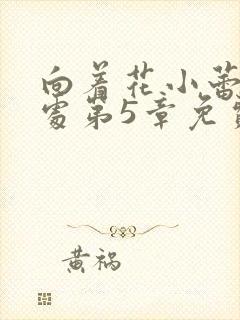 向着花小蕾
处第5章免费
黄祸